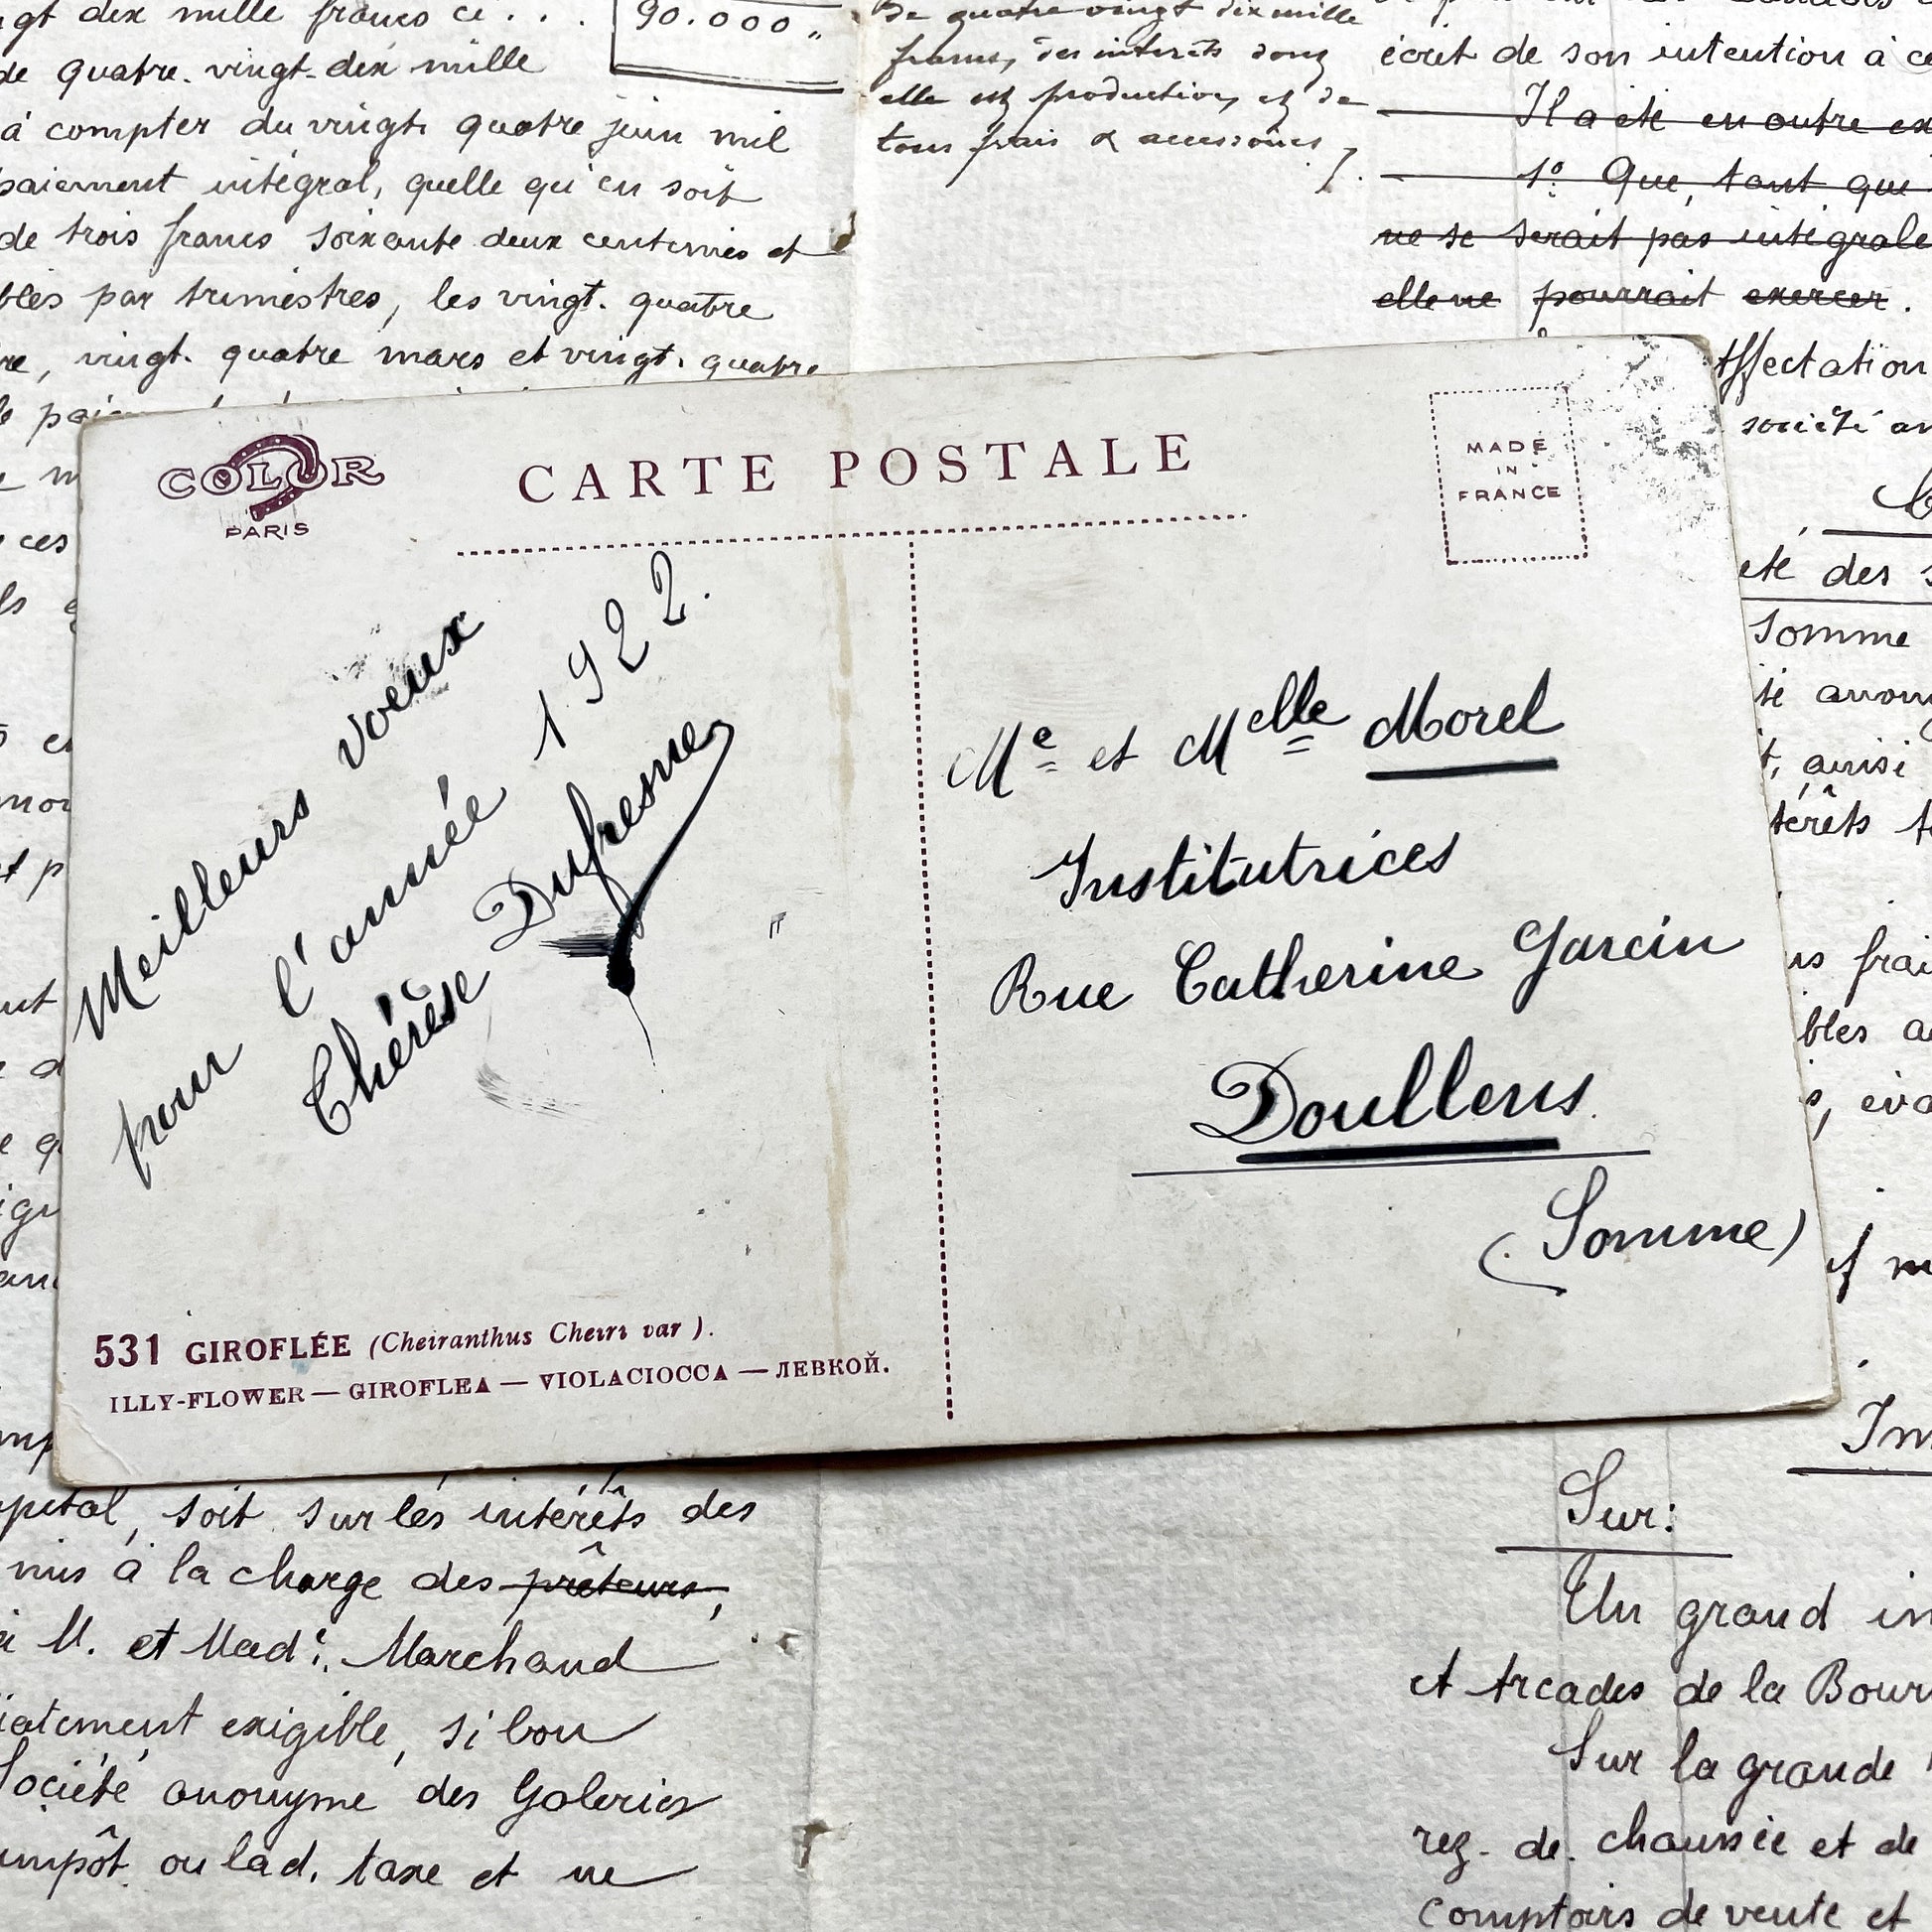 gt dix mille francs ci . . .
90.000 "
de quatre-vingt-dix mille
à compter du vingt quatre juin mil
paiement intégral, quelle qu'en soit
de trois francs soixante deux centimes et
bles par trimestres, les vingt-quatre
re, vingt-quatre mars et vingt-quatre
De quatre vingt dix mille
francs, des intérêts dont
elle est productive, et de
tous frais & accessoires
écrit de son intention à ce
Il a été en outre ex
1º. Que, tant que
ne se serait pas intégrale
elle ne pourrait exercer.
ffectation
société an
eté des s
somme
té anony
t, ainsi
térêts
s frai
bles a
COLOR
PARIS
CARTE POSTALE
MADE
IN
FRANCE
Meilleurs voeux
pour l'année 1922.
Thérèse Dufresne
Me et Melle Morel
Institutrices
Rue Catherine Garcin
Doullens
(Somme)
531 GIROFLÉE (Cheiranthus Cheiri var ).
ILLY-FLOWER — GIROFLEA — VIOLACIOCCA — ЛЕВКОЙ.
pital, soit sur les intérêts des
mis à la charge des prêteurs,
M. et Made. Marchand
iatement exigible, si bon
Société anonyme des Galeries
impôt ou lad. taxe et ne
Sur:
Un grand im
et Arcades de la Bour
Sur la grande
rez-de-chaussée et de
comptoirs de vente et